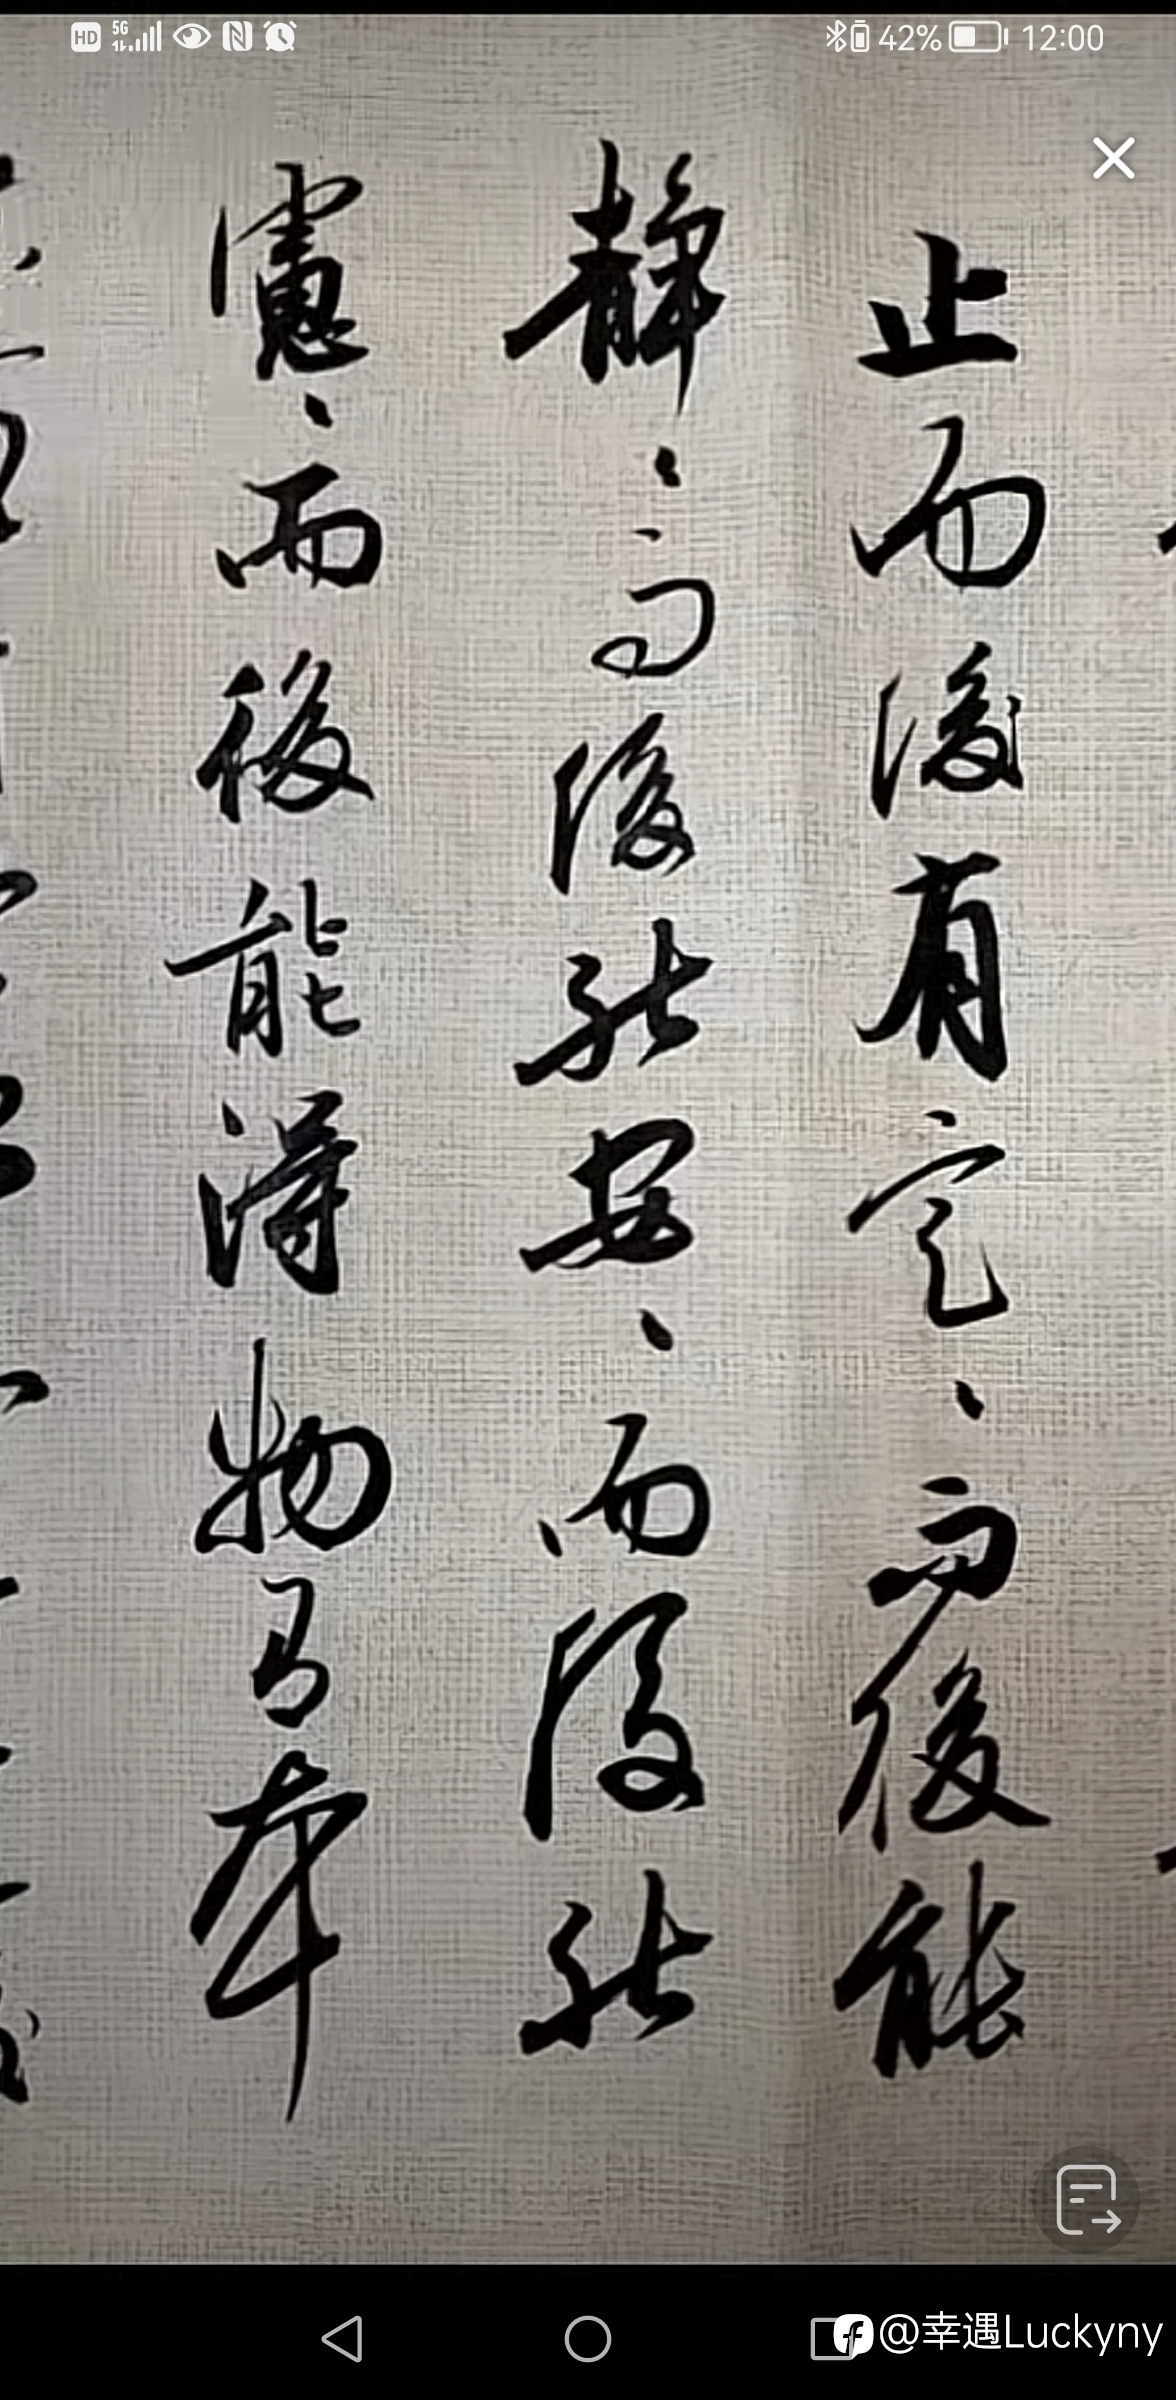 HD 5G 42% 12:00
止而後有定、而後能
靜、而後能安、而後能
慮、而後能得物有本
@幸遇Luckyny